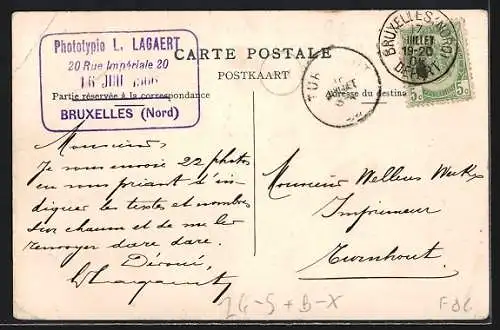 Phototypie L. LAGAERT
20 Rue Impériale 20
16 JUI 1906
BRUXELLES (Nord)
CARTE POSTALE
POSTKAART
Partie réservée à la correspondance
Adresse du destina
BRUXELLES (NORD)
17
JUILLET
19-20
DEPART
TUR
JUILLET
5c 5c
Monsieur,
Je vous envoie 22 photos
en vous priant d'in-
diquer les textes et nombres
sur chacun et de me les
renvoyer dare dare.
Dévoué,
Monsieur Wellens
Imprimeur
Turnhout
24-5+B-X